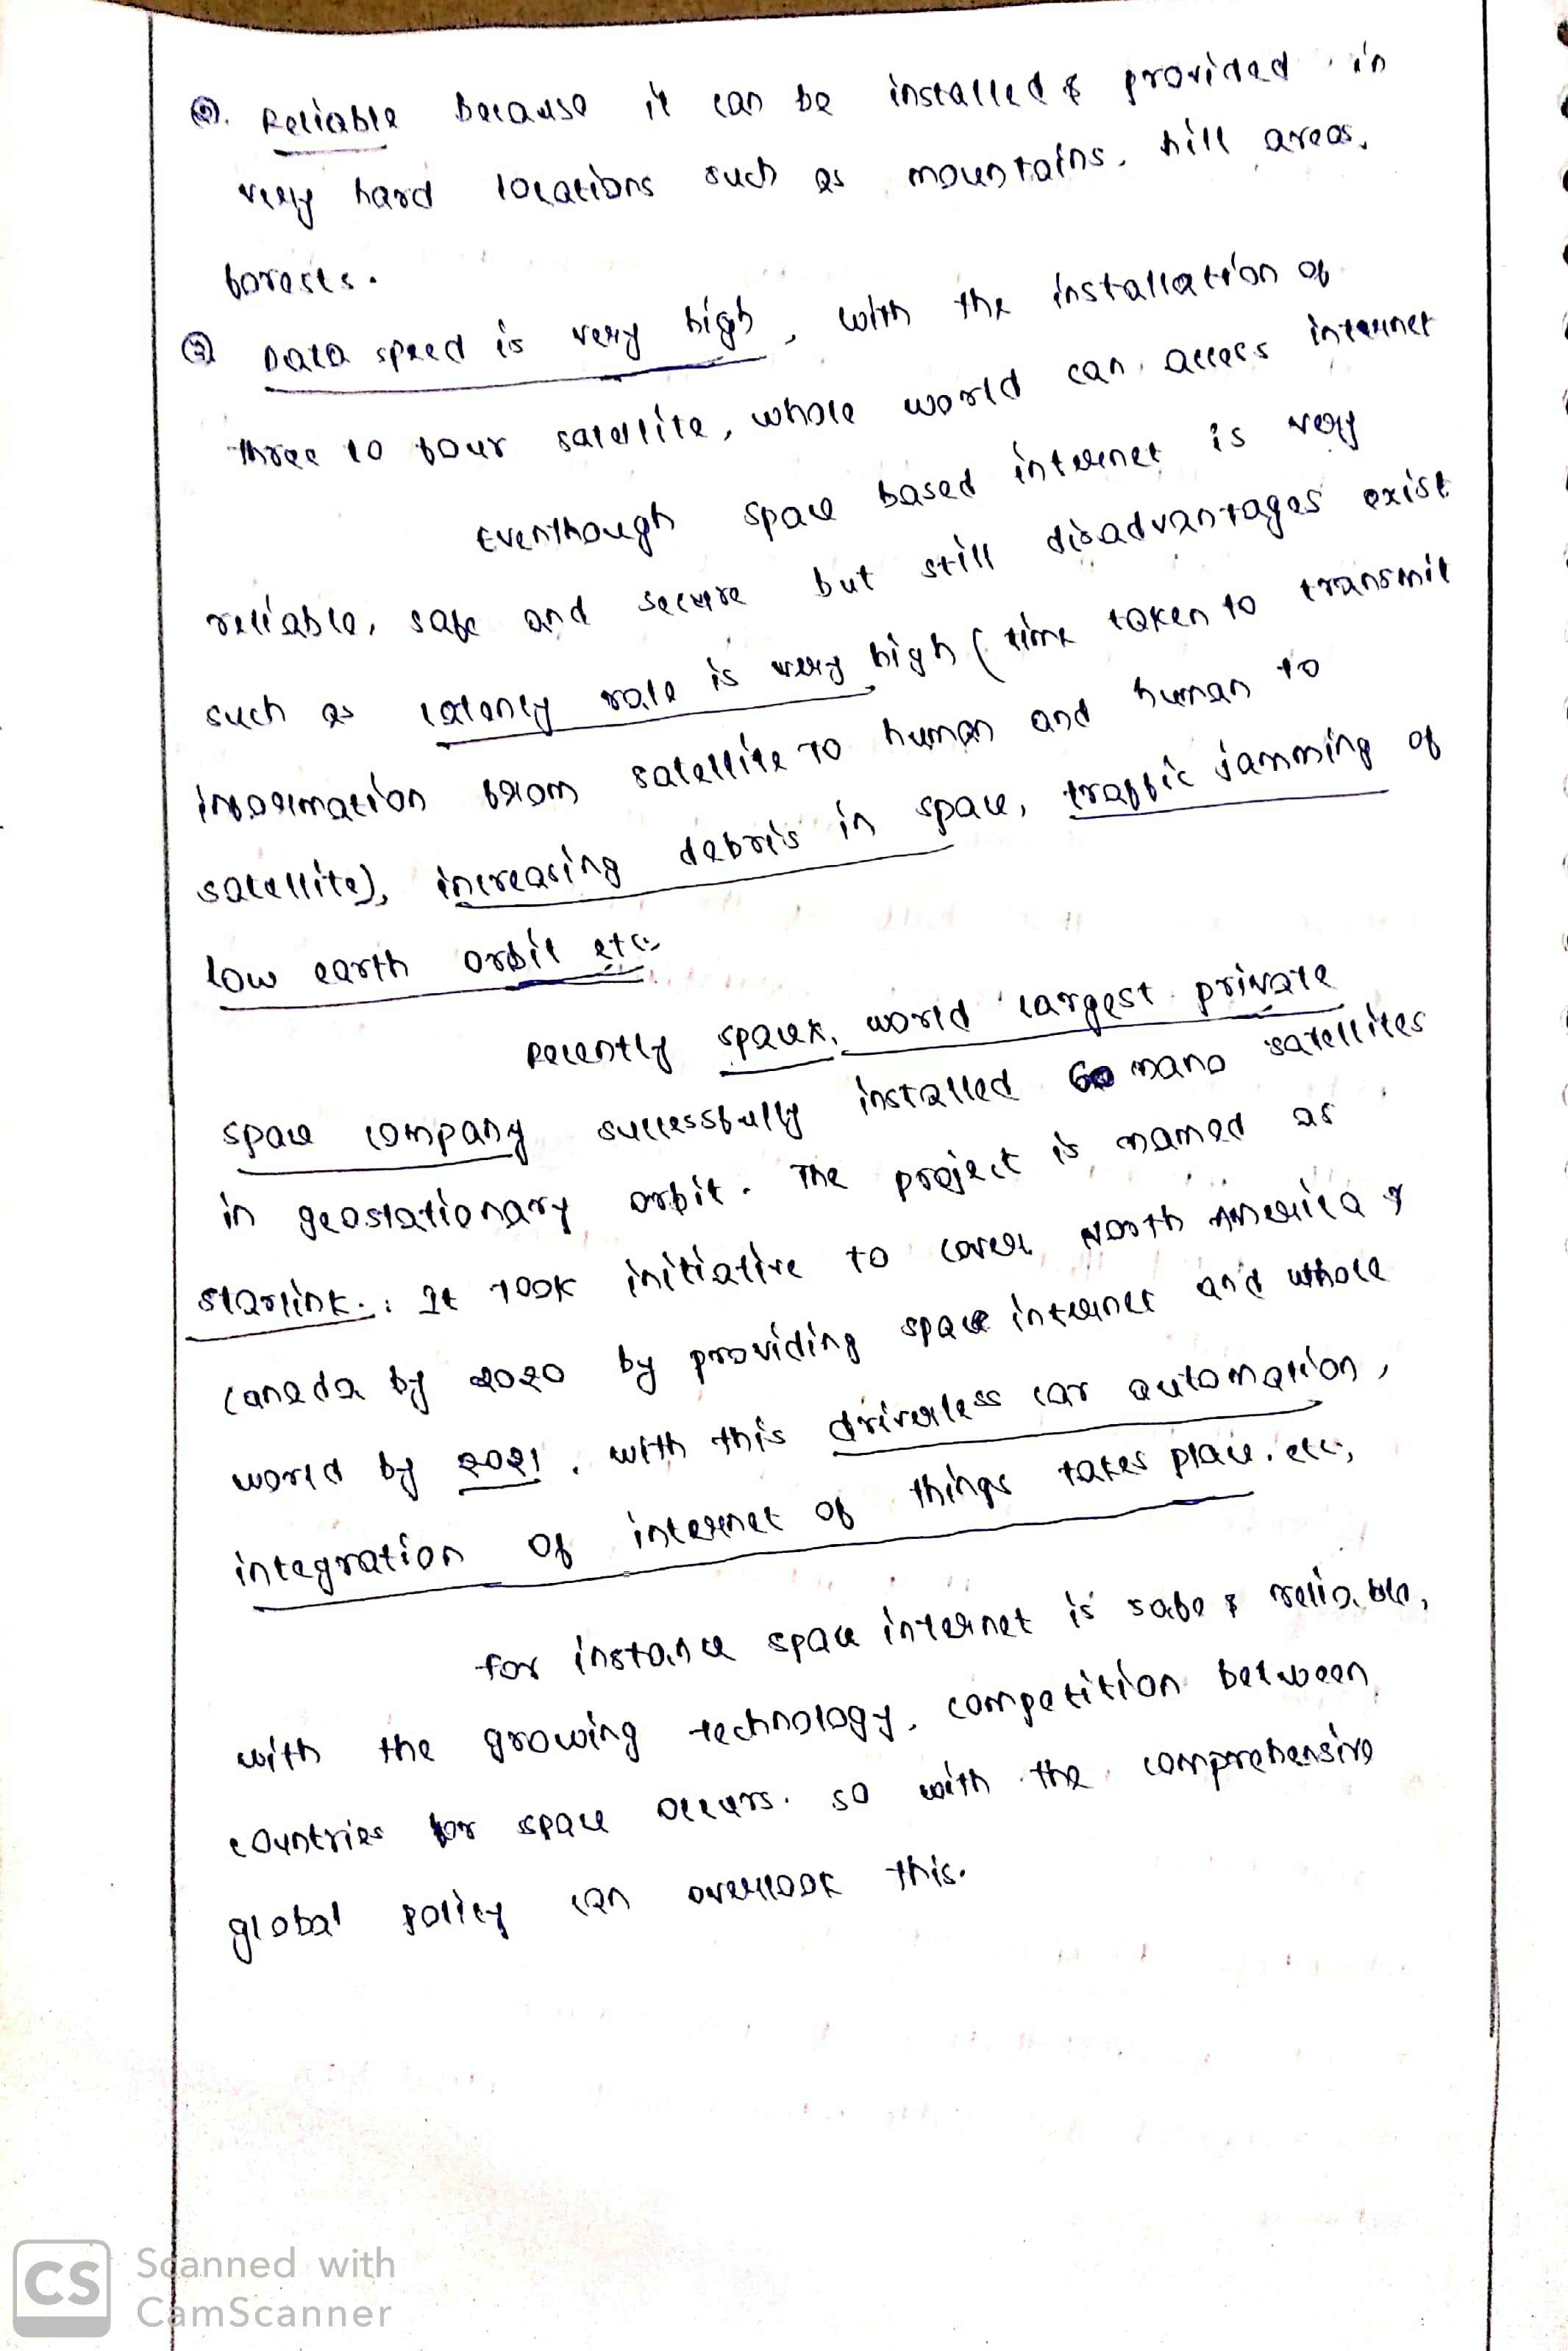 ②. Reliable because it can be installed & provided in
very hard locations such as mountains, hill areas,
forests.
③ Data speed is very high, with the installation of
three to four satellite, whole world can access internet
Eventhough space based internet is very
reliable, safe and secure but still disadvantages exist
such as latency rate is very high (time taken to transmit
information from satellite to human and human to
satellite), increasing debris in space, traffic jamming of
low earth orbit etc.
Recently spacex, world largest private
space company successfully installed 60 nano satellites
in geostationary orbit. The project is named as
starlink. It took initiative to cover North America &
Canada by 2020 by providing space internet and whole
world by 2021. with this driverless car automation,
integration of internet of things takes place. etc,
for instance space internet is safe & reliable,
with the growing technology, competition between
countries for space occurs. so with the comprehensive
global policy can overlook this.
CS Scanned with
CamScanner